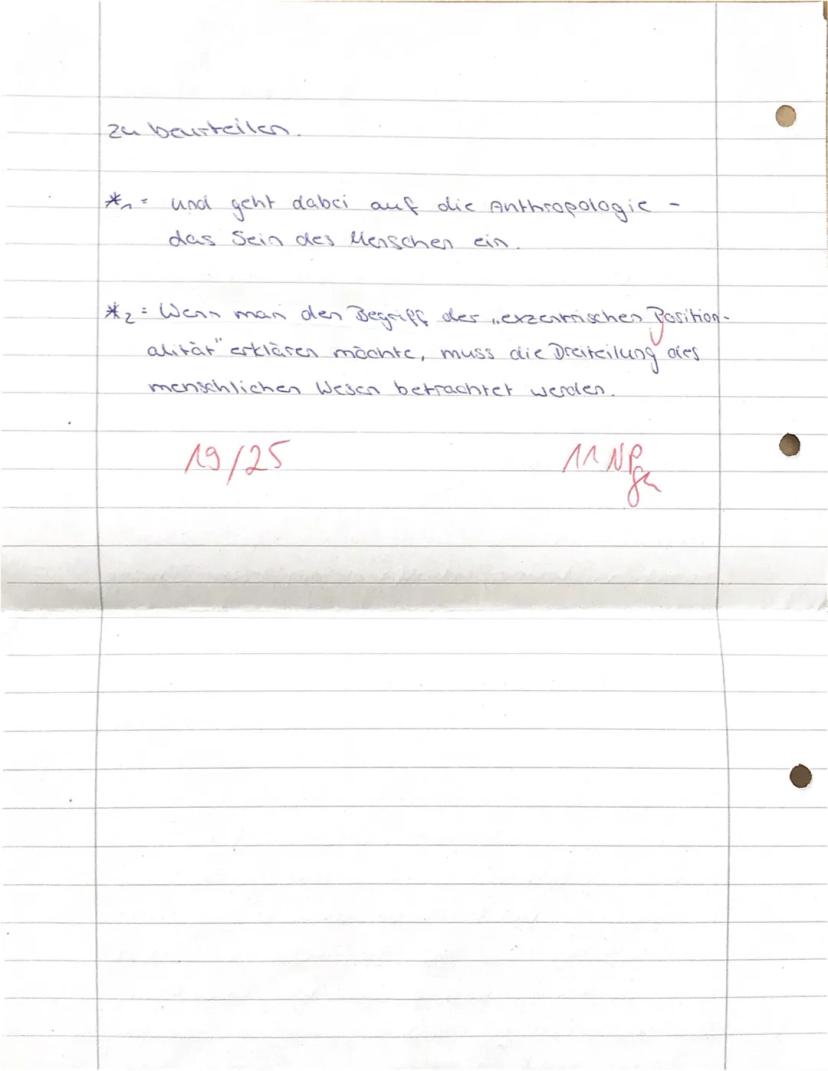 zu beurteilen.
*1 = und geht dabei auf die Anthropologie -
das Sein des Menschen ein.
*2 = Wenn man den Begriff der „exzentrischen Position-
alität" erklären möchte, muss die Dreiteilung des
menschlichen Wesen betrachtet werden.
19/25 11 NP